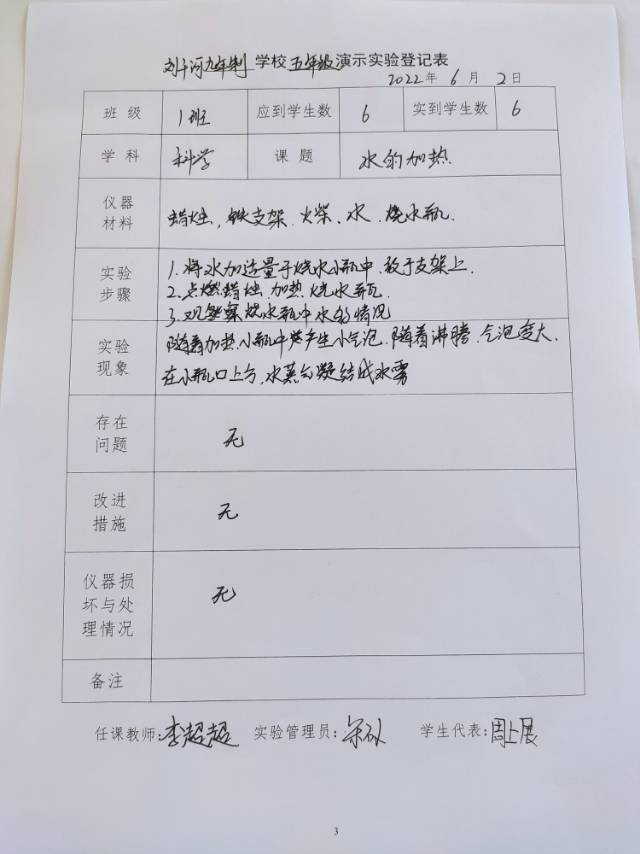 刘河九年制学校五年级演示实验登记表
2022年6月2日
班级 1班 应到学生数 6 实到学生数 6
学科 科学 课题 水的加热
仪器材料 蜡烛、铁支架、火柴、水、烧水瓶.
实验步骤 1.将水加适量于烧水小瓶中,放于支架上.
2.点燃蜡烛,加热烧水瓶.
3.观察烧水瓶中水的情况
实验现象 随着加热,小瓶中产生小气泡,随着沸腾,气泡变大.
在小瓶口上方,水蒸气凝结成水雾
存在问题 无
改进措施 无
仪器损坏与处理情况 无
备注
任课教师:李超超 实验管理员: 学生代表:周上展
3